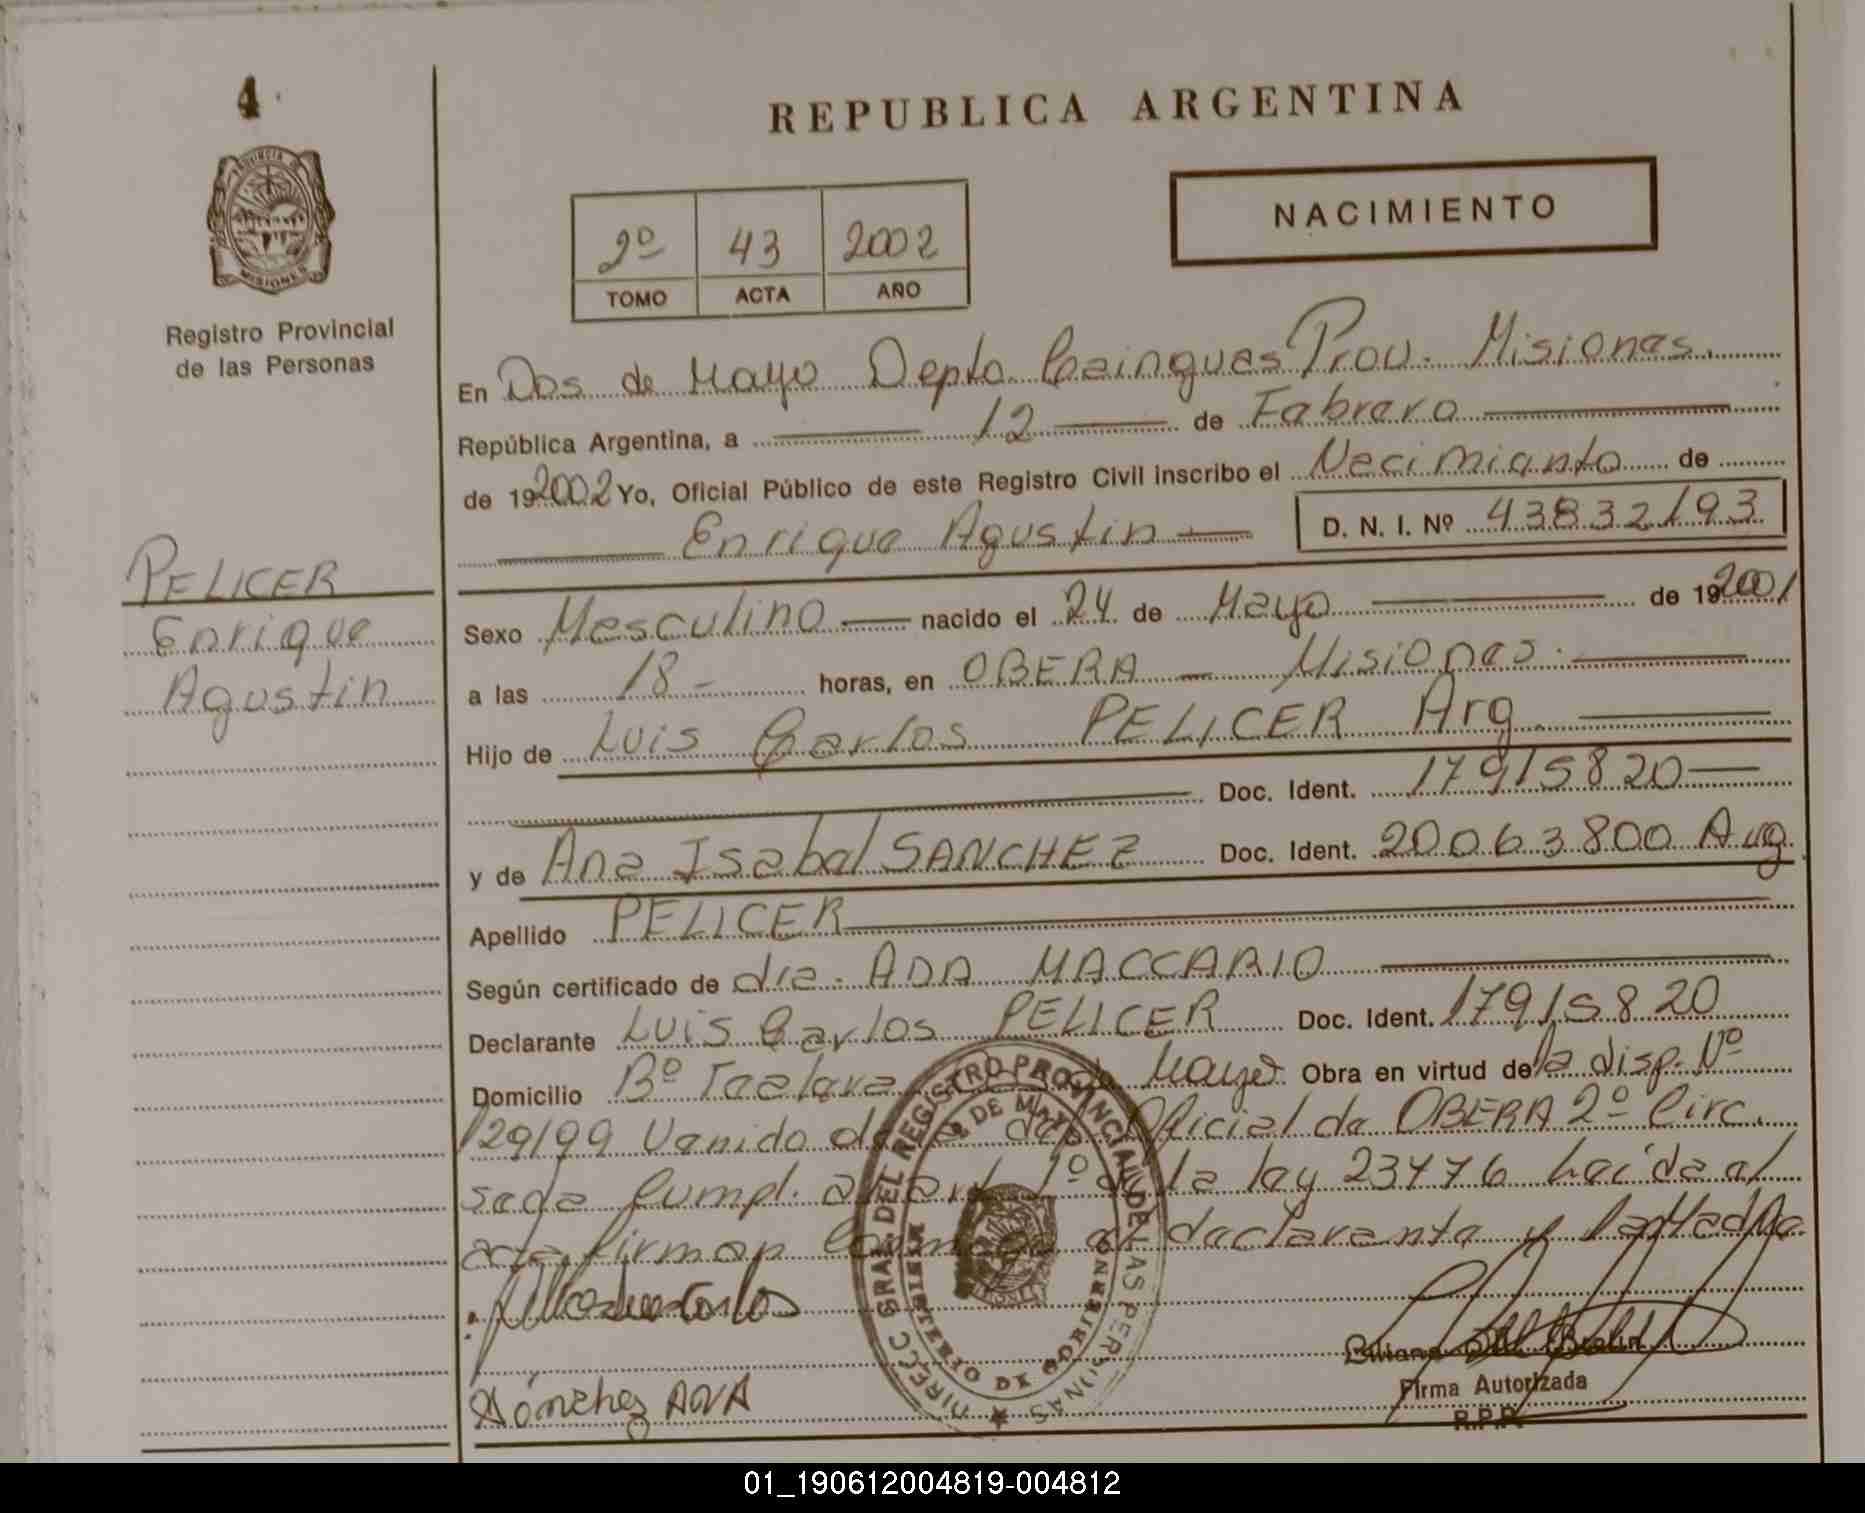 4
REPUBLICA ARGENTINA
PROVINCIA DE MISIONES
Registro Provincial
de las Personas
2º 43 2002
TOMO ACTA AÑO
NACIMIENTO
En Dos de Mayo Depto. Cainguas Prov. Misiones.
República Argentina, a 12 de Febrero
de 192002 Yo, Oficial Público de este Registro Civil inscribo el Nacimiento de
Enrique Agustin D. N. I. Nº 43832193
PELICER
Enrique
Agustin
Sexo Masculino nacido el 24 de Mayo de 192001
a las 18 - horas, en OBERA - Misiones.
Hijo de Luis Carlos PELICER Arg.
Doc. Ident. 17915820
y de Ana Isabel SANCHEZ Doc. Ident. 20063800 Arg.
Apellido PELICER
Según certificado de dra. ADA MACCARIO
Declarante Luis Carlos PELICER Doc. Ident. 17915820
Domicilio Bº Mayo. Obra en virtud de la disp. Nº
129/99 Venido de Oficial de OBERA 2º Circ.
sede Cumpl. al art 1º de la ley 23476 Leida el
acta firman el declarante y
Sánchez ANA
DIRECC GRAL DEL REGISTRO PROVINCIAL DE LAS PERSONAS
2 DE MAYO
MINISTERIO DE GOBIERNO
Firma Autorizada
R.P.P.
01_190612004819-004812